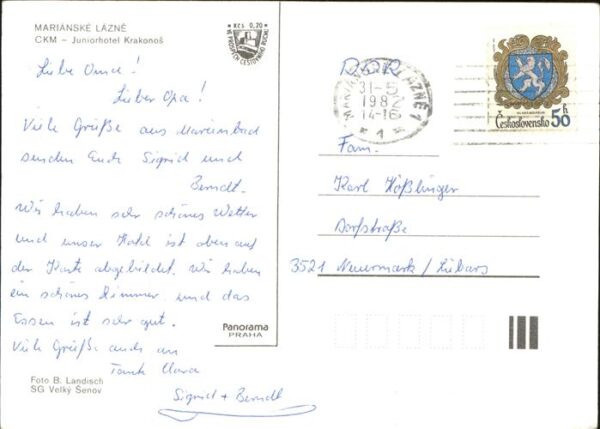 MARIÁNSKÉ LÁZNĚ
ČKM – Juniorhotel Krakonoš
Liebe Oma!
Lieber Opa!
Viele Grüße aus Marienbad
senden Euch Sigrid und
Berndt.
Wir haben sehr schönes Wetter
und unser Hotel ist oben auf
der Karte abgebildet. Wir haben
ein schönes Zimmer und das
Essen ist sehr gut.
Viele Grüße auch an
Tante Clara
Sigrid + Berndt
Foto B. Landisch
SG Velký Šenov
KČS 0,20
Panorama
PRAHA
DDR
MARIÁNSKÉ LÁZNĚ 1
31-5
1982
14-16
* 1 *
Československo 50 h
Fam.
Karl Häßlinger
Dorfstraße
3521 Neuermark / Lübars